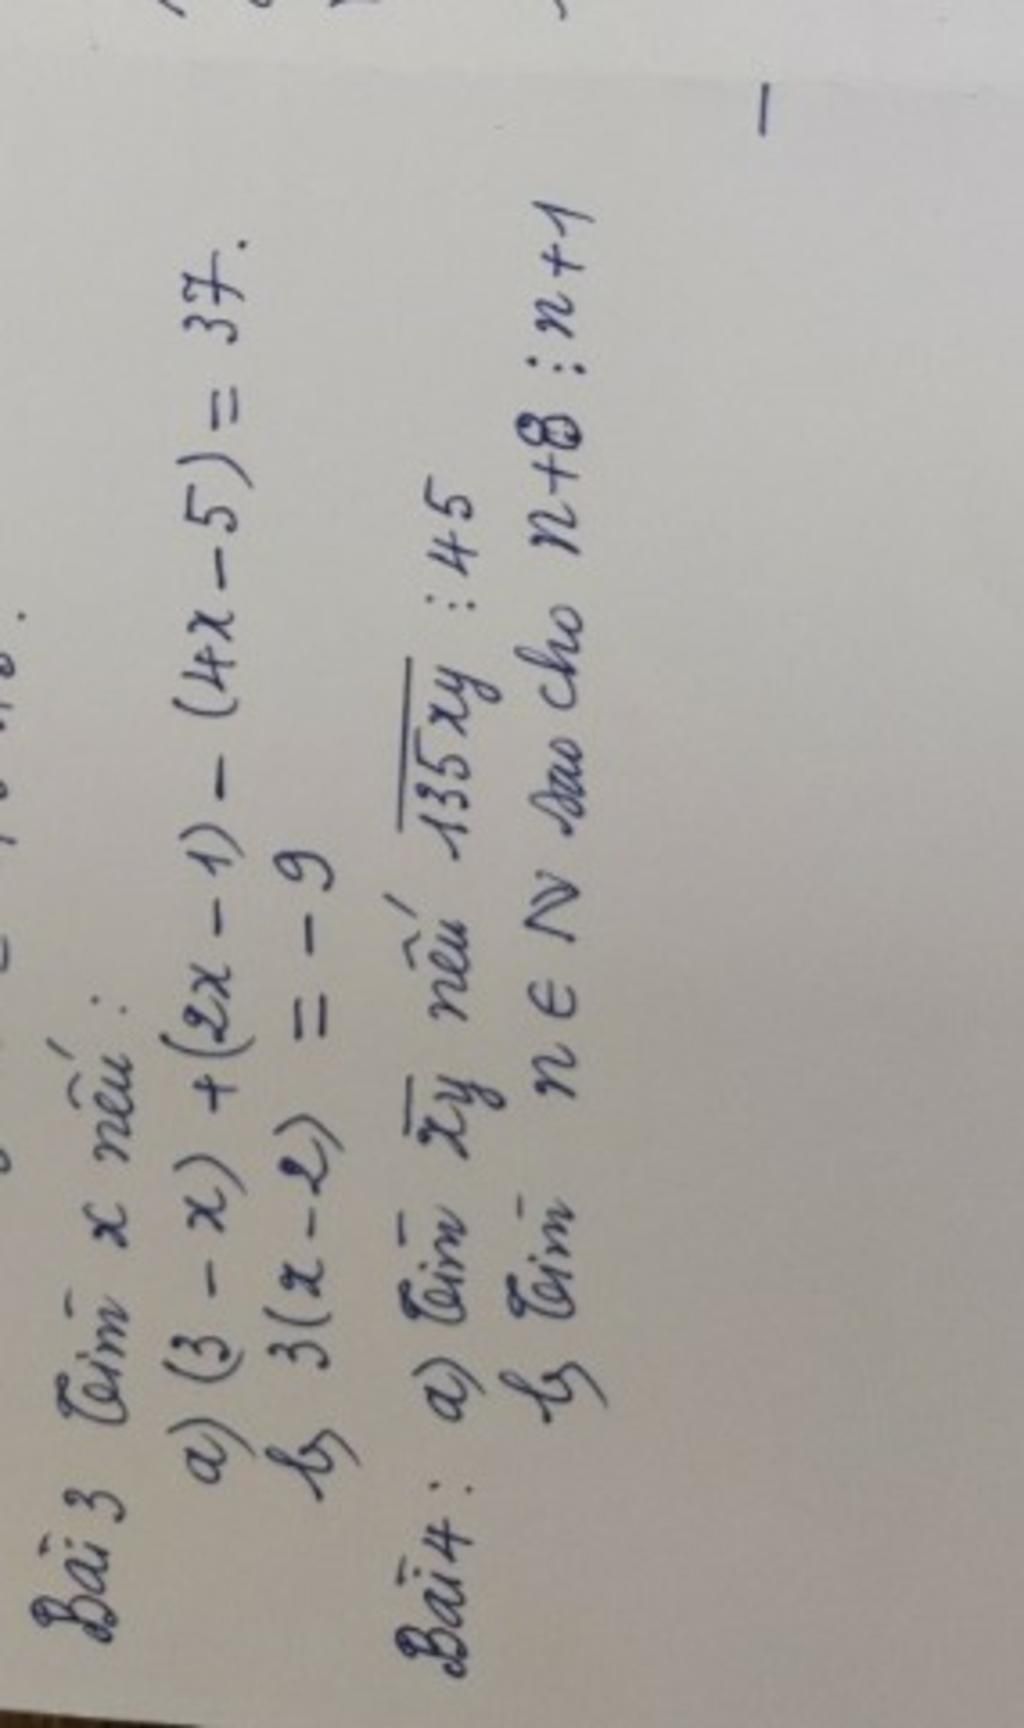 Bài 3 Tìm x nếu:
a) (3 - x) + (2x - 1) - (4x - 5) = 37.
b) 3(x - 2) = - 9
Bài 4: a) Tìm x̅y̅ nếu 1̅3̅5̅x̅y̅ ⋮ 45
b) Tìm n ∈ N sao cho n + 8 ⋮ n + 1